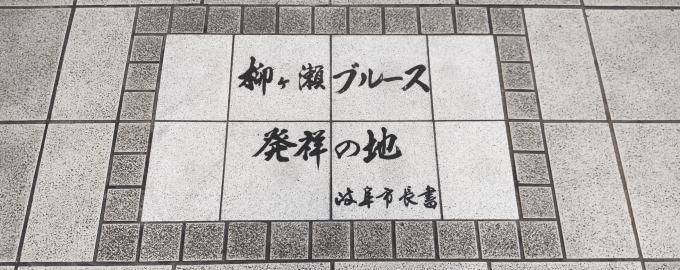 柳ヶ瀬ブルース
発祥の地
岐阜市長書